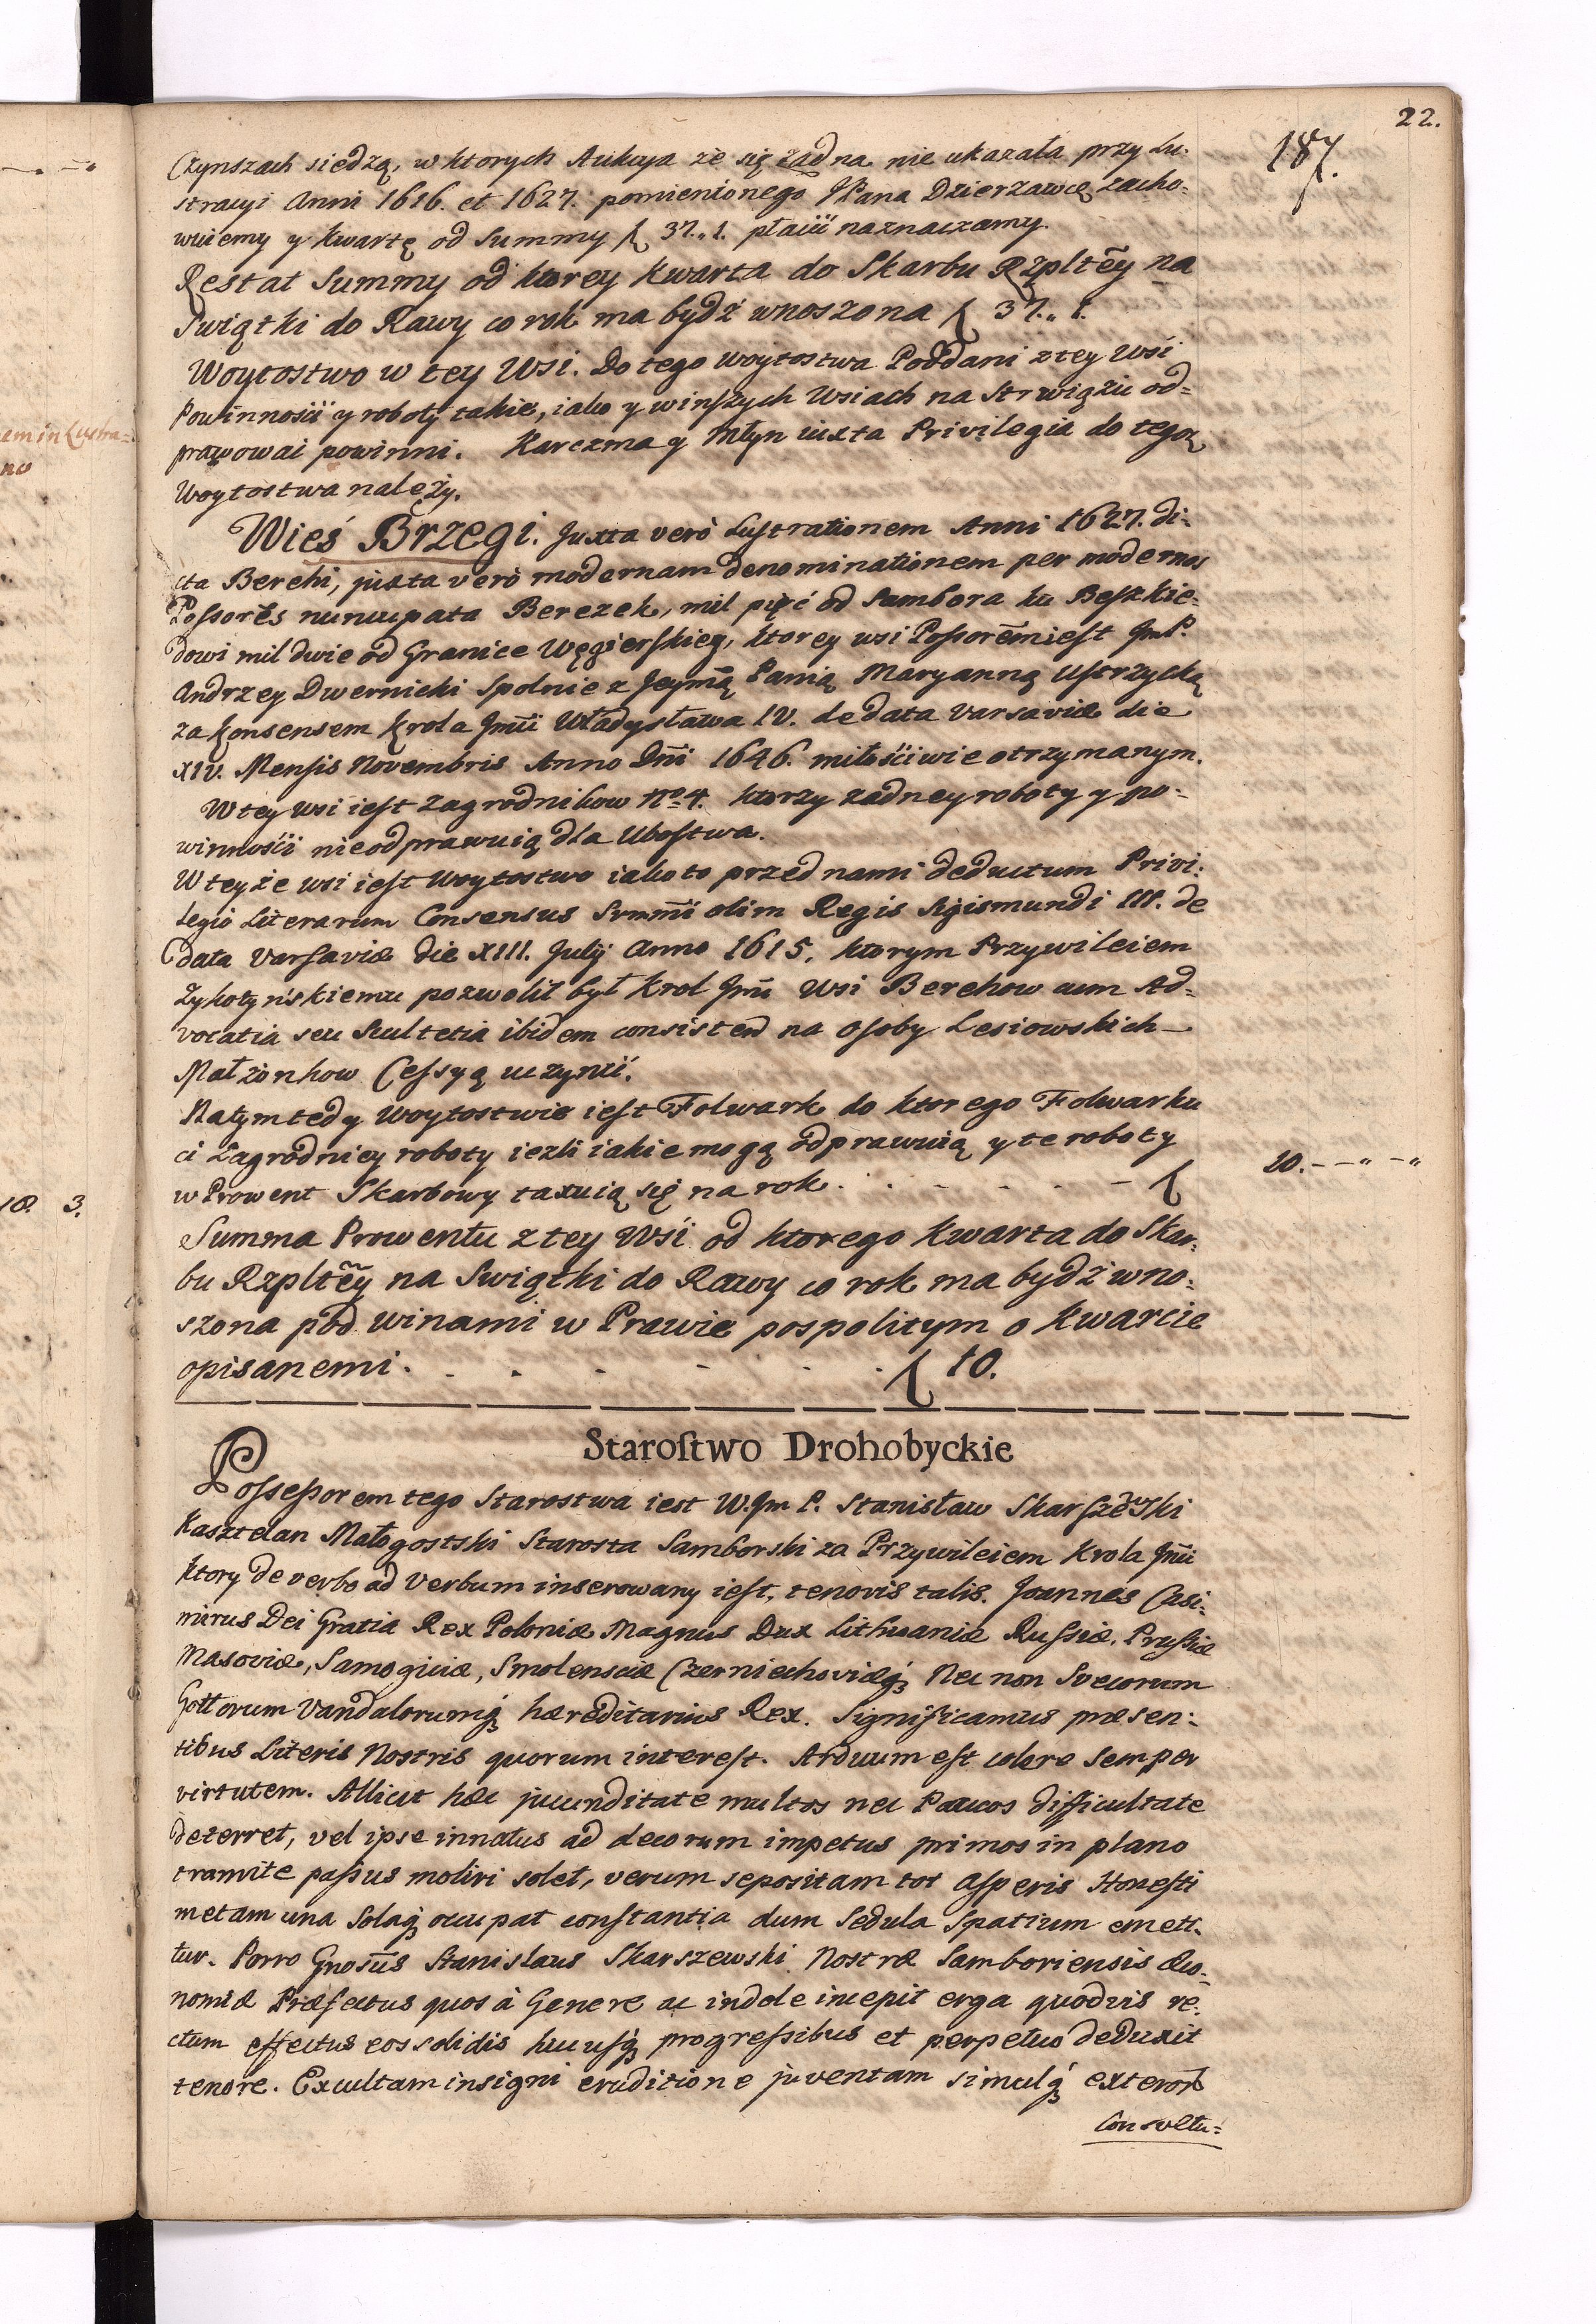 22.
187.
Czynszach siedzą, w ktorych Aukcya że się żadna nie ukazała przy Lu-
stracyi Anni 1616. et 1627. pomienionego JPana Dzierzawcę zacho-
wuiemy y kwartę od Summy f 37.,1. płacić naznaczamy.
Restat Summy od ktorey kwarta do Skarbu Rzpltey na
Swiątki do Rawy co rok ma bydź wnoszona f 37.,1.
Woytostwo w tey Wsi. Do tego woytostwa Poddani z tey Wsi
Powinności y roboty takie, iako y w inszych Wsiach na Strwiążu od-
prawować powinni. Karczma y Młyn iuxta Privilegia do tego
Woytostwa należy.
Wieś Brzegi. Juxta verò Lustrationem Anni 1627. di-
cta Berehi, juxta verò modernam denominationem per modernos
Possores nuncupata Berezek, mil pięć od Sambora ku Beszkie-
dowi mil dwie od Granice Węgierskiey, ktorey wsi Possorem iest JmP.
Andrzey Dwernicki Spolnie z Jeymą Panią Maryanną Ustrzycką
za konsensem Krola Jmci Władysława IV. de data Varsaviæ die
XIV. Mensis Novembris Anno Dni 1646. miłościwie otrzymanym.
W tey wsi iest zagrodnikow No 4. ktorzy zadney roboty y po-
winności nie odprawuią dla Ubostwa.
W teyże wsi iest woytostwo iako to przed nami deductum Privi-
legio Literarum Consensus Srmmi olim Regis Sigismundi III. de
data Varsaviæ die XIII. Julij Anno 1615. ktorym Przywileiem
Żykotyńskiemu pozwolił był Krol Jmć Wsi Berehow cum Ad-
vocatia seu Scultetia ibidem consisten na osoby Lesiowskich
Małżonkow Cessyą uczynić.
Na tym tedy woytostwie iest Folwark do ktorego Folwarku
ci Zagrodnicy roboty iezli iakie mogą odprawuią y te roboty
w Prowent Skarbowy taxuią się na rok . . - - - - f 20. - - " - "
Summa Prowentu z tey Wsi od ktorego kwarta do Skar-
bu Rzpltey na Swiątki do Rawy co rok ma bydź wno-
szona pod winami w Prawie pospolitym o kwarcie
opisanemi. . . - - . f 10.
Starostwo Drohobyckie
Possessorem tego Starostwa iest W.Jm P. Stanisław Skarszewski
Kasztelan Małogostski Starosta Samborski za Przywileiem Krola Jmci
ktory de verbo ad Verbum inserowany iest, tenoris talis. Joannes Casi-
mirus Dei Gratia Rex Poloniæ Magnus Dux Lithuaniæ Russiæ, Prussiæ
Masoviæ, Samogitiæ, Smolensciæ Czerniechoviæq, Nec non Svecorum
Gottorum Vandalorumq hæreditarius Rex. Significamus præsen-
tibus Literis Nostris quorum interest. Arduum est colere semper
virtutem. Allicit hæc jucunditate multos nec Paucos difficultate
deterret, vel ipse innatus ad decorum impetus primos in plano
tramite passus moliri solet, verum sepositam tot asperis Honesti
metam una solaq occupat constantia dum sedula spatium emeti-
tur. Porro Gnosus Stanislaus Skarszewski Nostræ Samboriensis Œco-
nomiæ Præfectus quos à Genere ac indole incepit erga quodvis re-
ctum effectus eos solidis hucusq progressibus et perpetuo deduxit
tenore. Excultam insigni eruditione juventam simulq exteror
Consvetu-